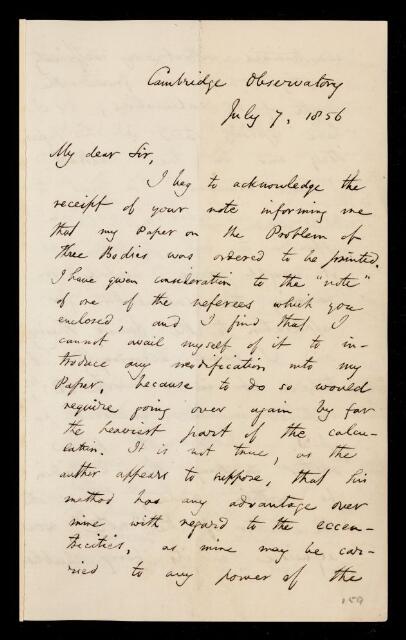 Cambridge Observatory
July 7, 1856
My dear Sir,
I beg to acknowledge the
receipt of your note informing me
that my Paper on the Problem of
Three Bodies was ordered to be printed.
I have given consideration to the "note"
of one of the referees which you
enclosed, and I find that I
cannot avail myself of it to in-
troduce any modification into my
Paper, because to do so would
require going over again by far
the heaviest part of the calcu-
lation. It is not true, as the
author appears to suppose, that his
method has any advantage over
mine with regard to the eccen-
tricities, as mine may be car-
ried to any power of the
159